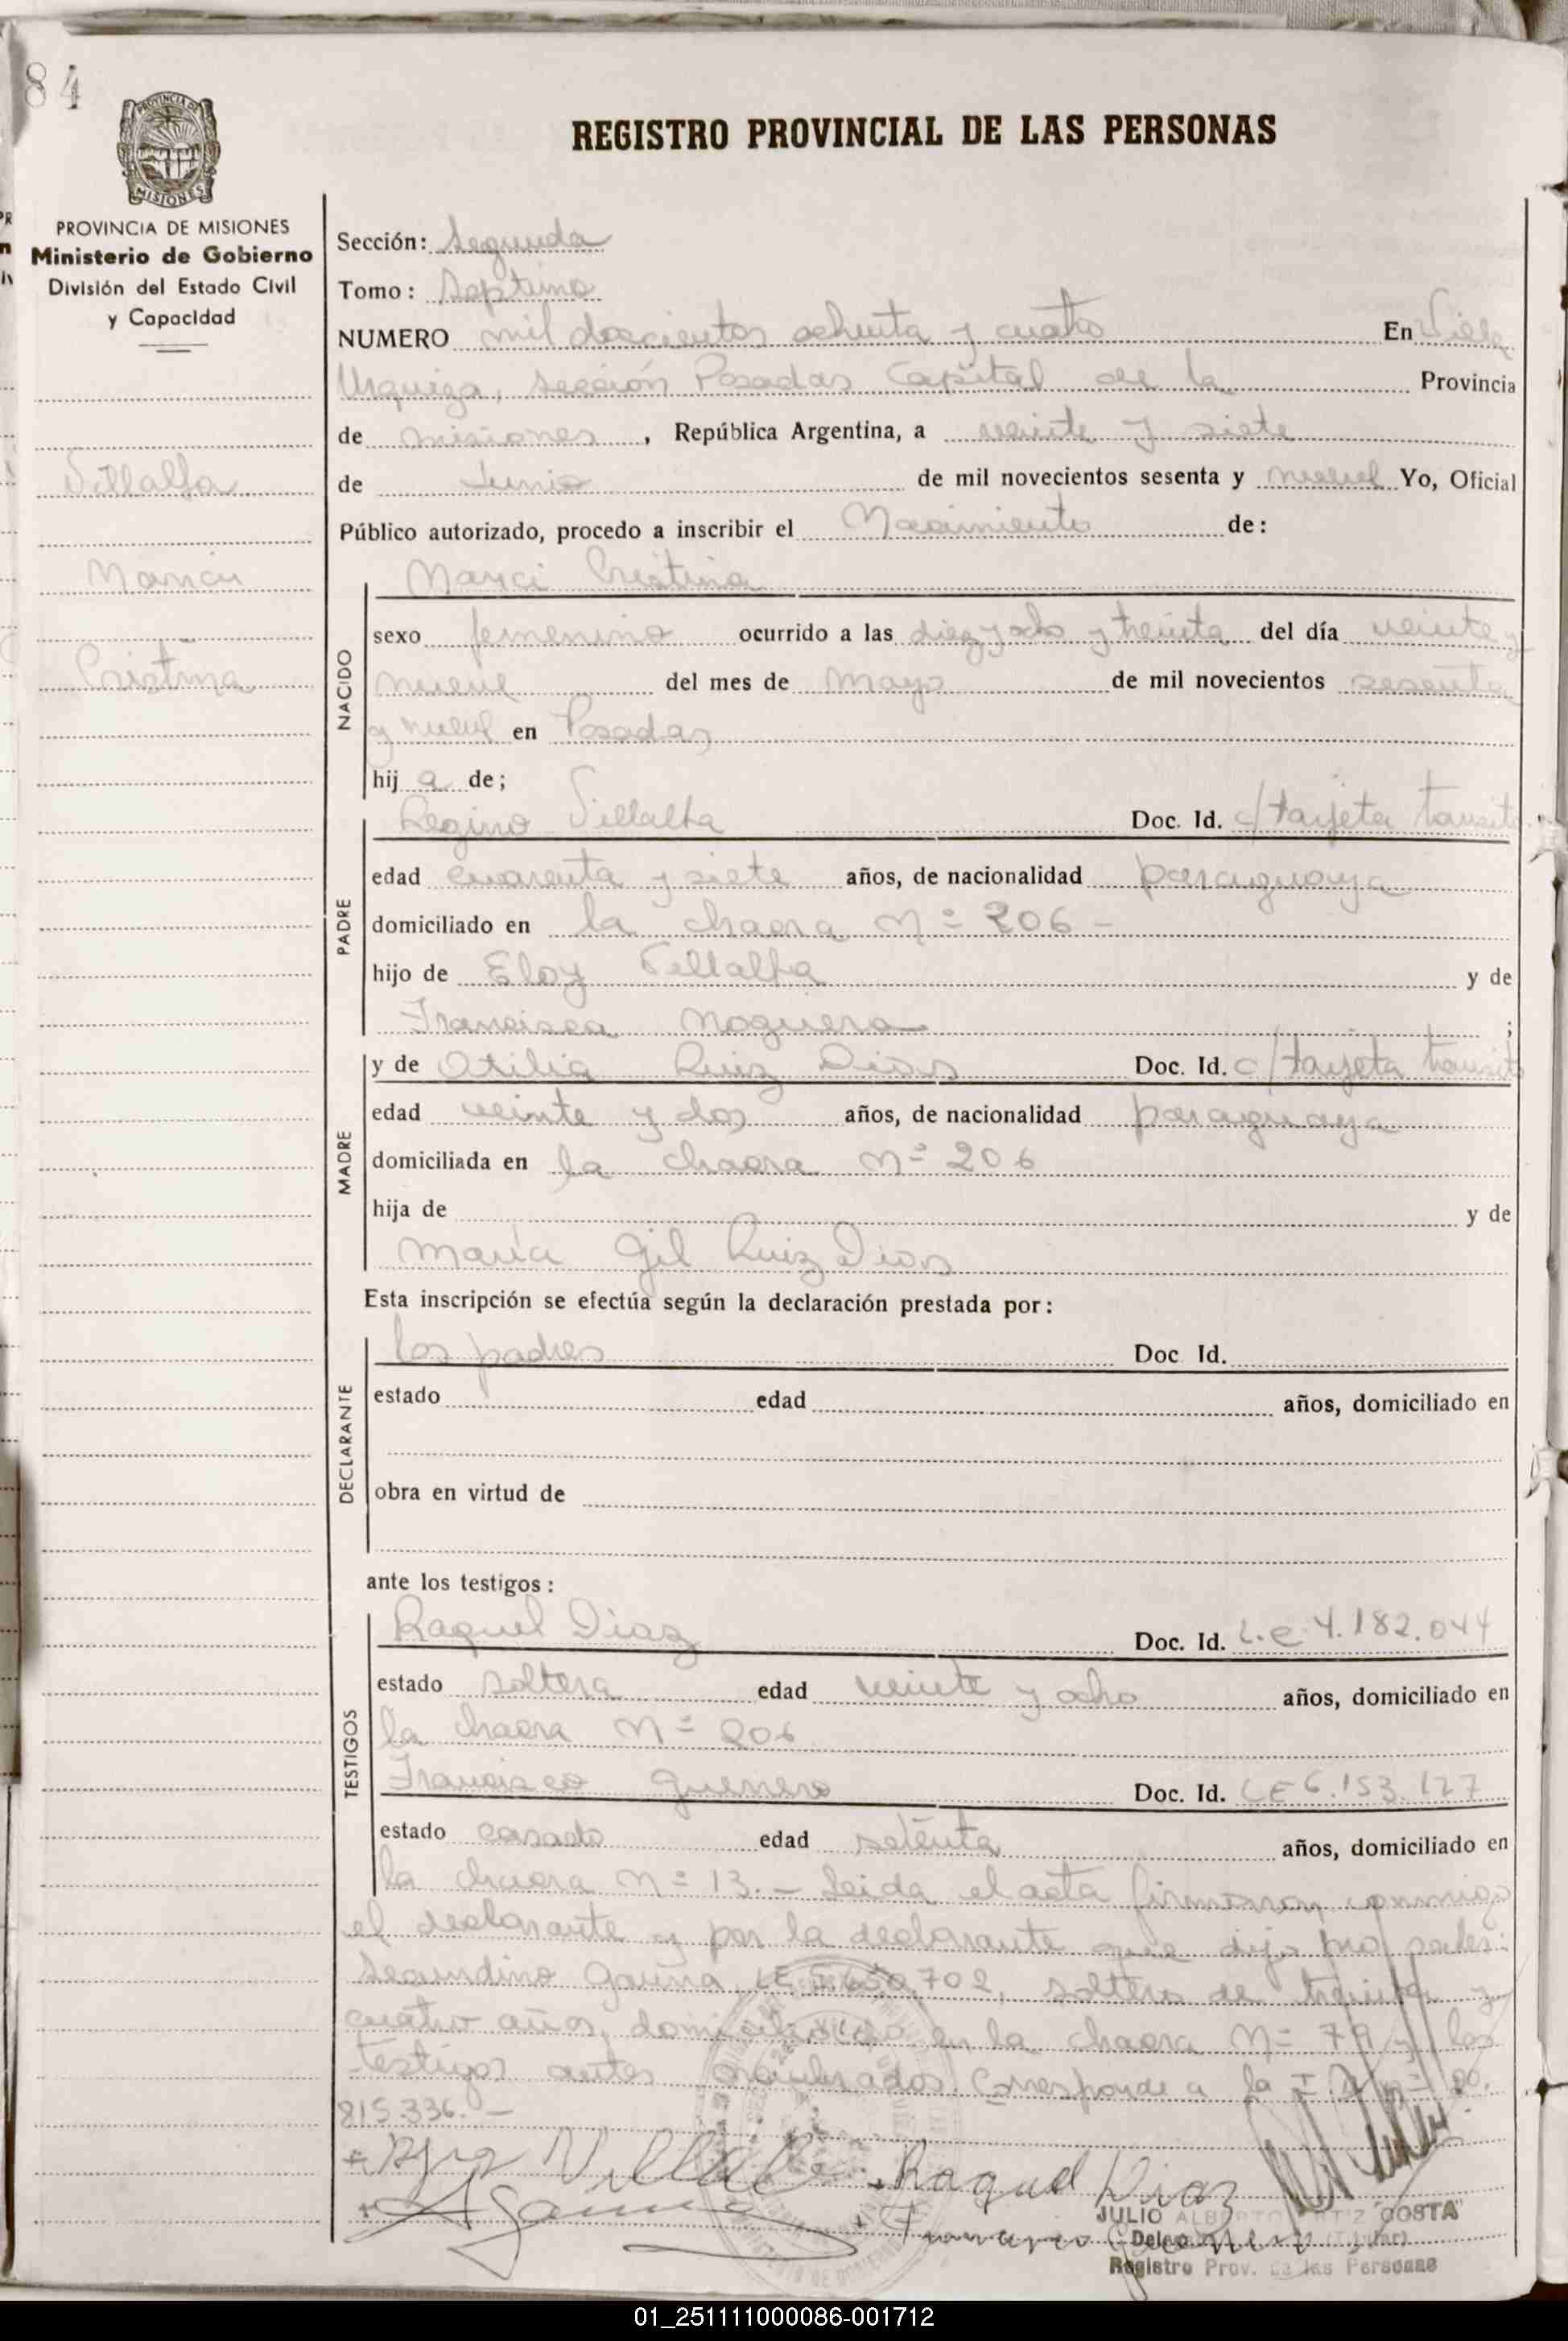 84
REGISTRO PROVINCIAL DE LAS PERSONAS
MISIONES
PROVINCIA DE MISIONES
Ministerio de Gobierno
División del Estado Civil
y Capacidad
Villalba
Nanci
Cristina
Sección: Segunda
Tomo: Septimo
NUMERO mil doscientos ochenta y cuatro En Villa
Urquiza, Sección Posadas Capital de la Provincia
de Misiones, República Argentina, a veinte y siete
de Junio de mil novecientos sesenta y nueve Yo, Oficial
Público autorizado, procedo a inscribir el Nacimiento de:
NACIDO
Nanci Cristina
sexo femenino ocurrido a las diez y ocho y treinta del día veinte y
nueve del mes de mayo de mil novecientos sesenta
y nueve en Posadas
hija de;
PADRE
Regino Villalba Doc. Id. c/tarjeta transito
edad cuarenta y siete años, de nacionalidad paraguaya
domiciliado en la chacra Nº 206 -
hijo de Eloy Villalba y de
Francisca Noguera ;
MADRE
y de Otilia Ruiz Dias Doc. Id. c/tarjeta transito
edad veinte y dos años, de nacionalidad paraguaya
domiciliada en la chacra Nº 206
hija de y de
María Gil Ruiz Dias
Esta inscripción se efectúa según la declaración prestada por:
DECLARANTE
los padres Doc Id.
estado edad años, domiciliado en
obra en virtud de
ante los testigos:
TESTIGOS
Raquel Diaz Doc. Id. L.C 4.182.044
estado soltera edad veinte y ocho años, domiciliado en
la chacra Nº 206
Francisco Guerrero Doc. Id. LE 6.153.127
estado casado edad setenta años, domiciliado en
la chacra Nº 13. - Leida el acta firmaron conmigo
el declarante y por la declarante que dijo no saber:
Secundino Gauna, LE 5650702, soltero de treinta y
cuatro años, domiciliado en la chacra Nº 79 y los
testigos antes nombrados. Corresponde a la
815.336. -
Villalba Raquel Diaz
Gauna Francisco Guerrero
JULIO ALBERTO ORTIZ COSTA
Delegado (Titular)
Registro Prov. de las Personas
01_251111000086-001712